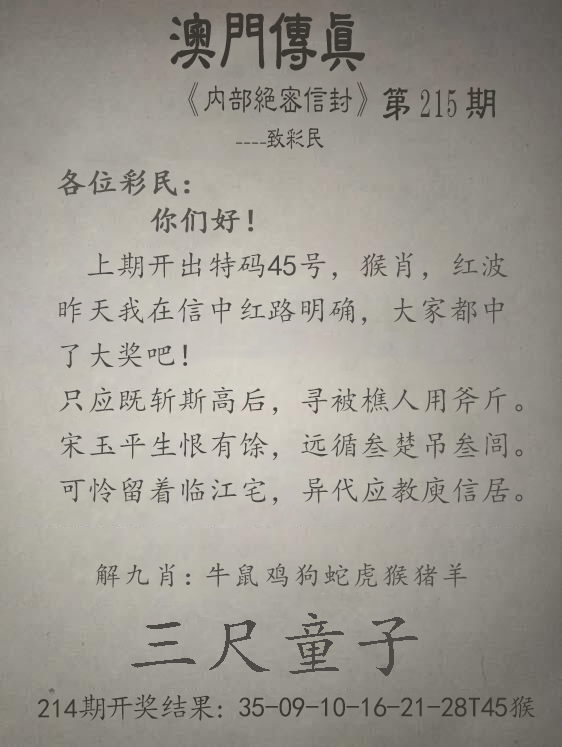 澳門傳眞
《内部絕密信封》第215期
----致彩民
各位彩民:
你们好!
上期开出特码45号，猴肖，红波
昨天我在信中红路明确，大家都中
了大奖吧!
只应既斩斯高后，寻被樵人用斧斤。
宋玉平生恨有馀，远循叁楚吊叁闾。
可怜留着临江宅，异代应教庾信居。
解九肖:牛鼠鸡狗蛇虎猴猪羊
三尺童子
214期开奖结果:35-09-10-16-21-28T45猴